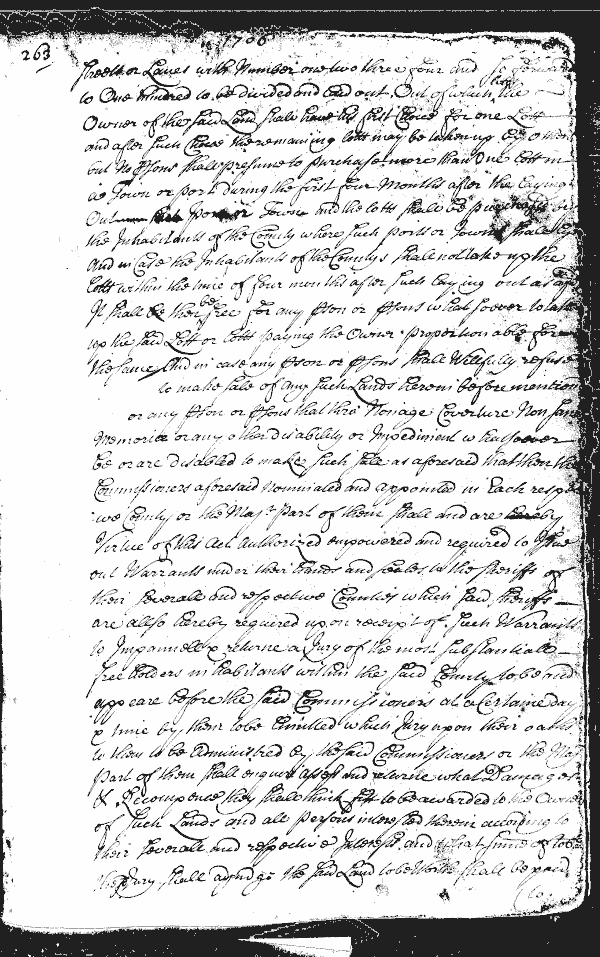 263
1706
Streets or Lanes with Number one two three four and so forward
to One hundred to be divided and laid out Out of which the
Owner of the said Land shall have his first Choice for one Lott
and after such Choice the remaining lotts may be taken up by others
but No Psons shall presume to purchase more than One Lott in
a Town or port during the first four Months after the Laying
Out port or Town and the lotts shall be purchased by
the Inhabitants of the County where such ports or Towns shall
And in Case the Inhabitants of the Countys shall not take up the
Lotts within the time of four months after such laying out as afd
It shall be then free for any Pson or Psons whatsoever to take
be
up the said Lott or lotts paying the Owner proportionable for
the same And in case any Pson or Psons shall Willfully refuse
to make sale of any such Lands herein before mention
or any Pson or Psons that thro Nonage Coverture Non Sane
Memorie or any other disability or Impediment whatsoever
be or are disabled to make such sale as aforesaid that then the
Commissioners aforesaid Nominated and appointed in Each respec
tive County or the Majr Part of them shall and are hereby
Virtue of this Act Authorized empowered and required to Issue
out Warrants under their hands and seales to the Sheriffs of
their severall and respective Counties which said sheriffs
are allso hereby required upon receipt of such Warrants
to Impannell & returne a Jury of the most substantiall
free holders inhabitants within the said County to be and
appeare before the said Commissioners at a Certaine day
& time by them to be limitted which Jury upon their oaths
to them to be Administred by the said Commissioners or the Majr
part of them shall enquire assess and returne what Damages
& Recompence they shall think fitt to be awarded to the Owners
of such Lands and all persons interested therein according to
their severall and respective Interest and what summe of tobo
the Jury shall adjudge the said Land to be Worth shall be paid
to